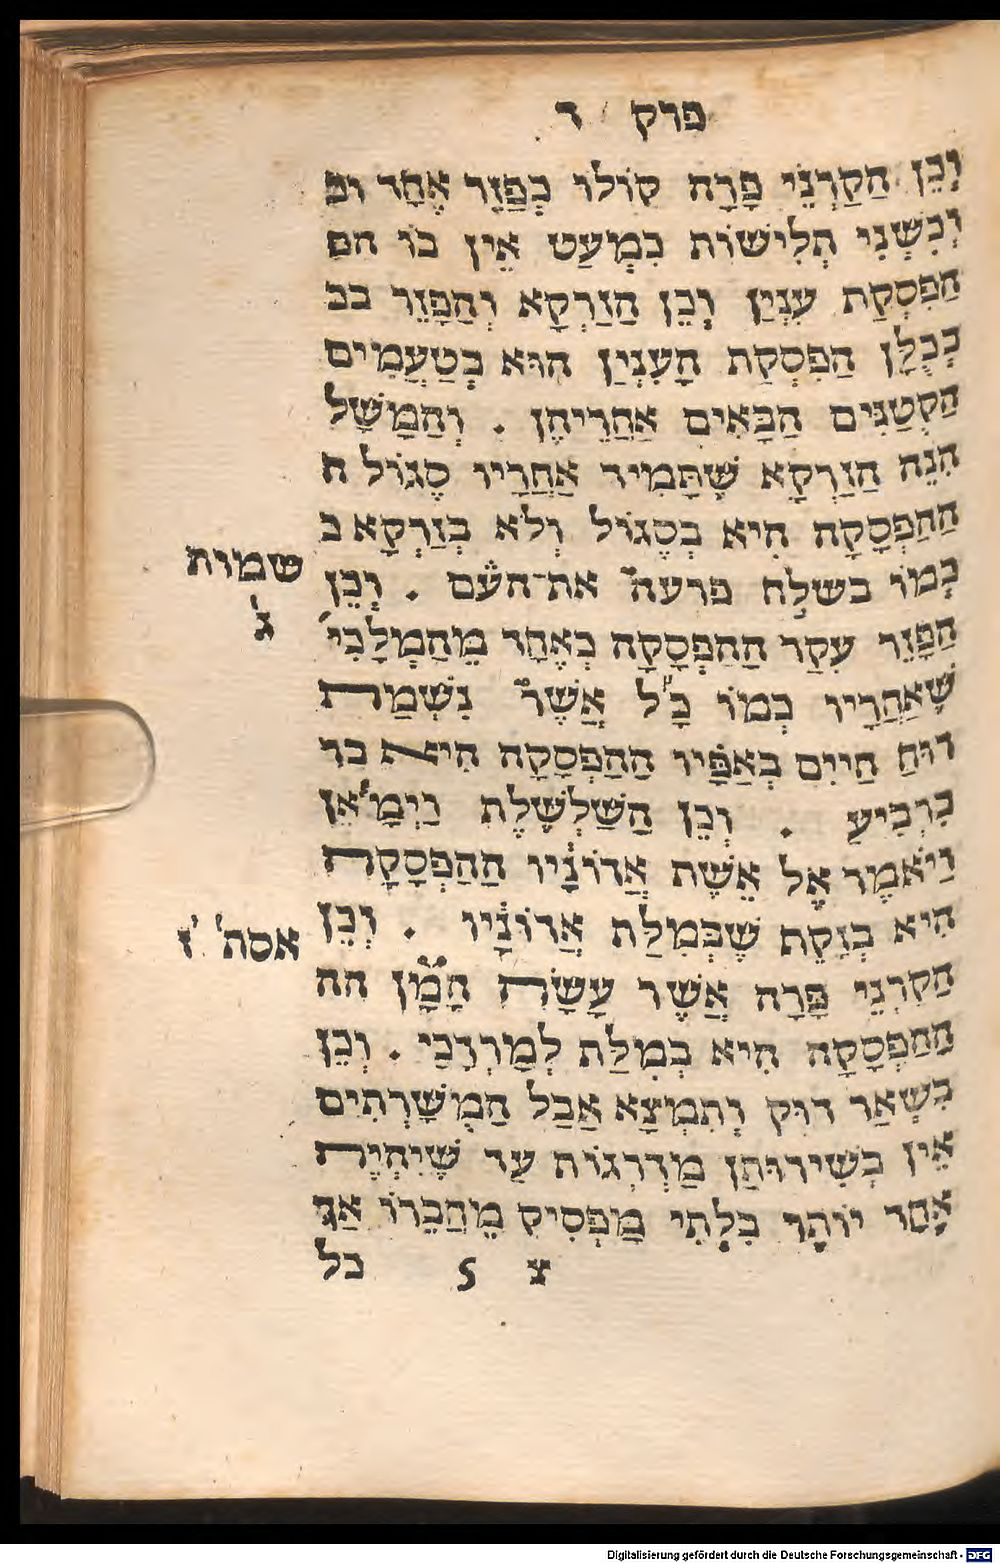 פרק ד
וְכֵן הַקַרְנֵי פָּרָה קוֹלוֹ כְּפַזֵר אֶחָד וכ
וְכִשְׁנֵי תְּלִישׁוֹת כִּמְעַט אֵין בּוֹ הפ
הַפְסְקַת עִנְיַן וְכֵן הַזַרְקָא וְהַפָּזֵר בכ
בְכֻלָּן הַפְסָקַת הָעִנְיַן הוּא בְּטַעֲמִים
הַקְטַנִּים הַבָּאִים אַחֲרֵיהֶן . וְהַמָשָׁל
הִנֵה הַזַרְקָא שֶׁתָּמִיד אַחֲרָיו סֶגּוֹל ה
הַהַפְסָקָה הִיא בְּסֶגּוֹל וְלֹא בְּזַרְקָא כ
כְּמוֹ בשלח פרעה את־העם . וְכֵן
שמות
יג
הַפָּזֵר עִקַר הַהַפְסָקָה בְּאֶחָד מֵהַמְלָכִי'
שֶׁאַחֲרָיו כְּמוֹ כָּל אֲשֶׁר נִשְׁמַת
רוּחַ חַיִּים בְּאַפָּיו הַהַפְסָקָה הִיא בר
בִּרְבִיעַ . וְכֵן הַשַּׁלְשֶׁלֶת וַיְמָאֵן
וַיֹאמֶר אֶל אֵשֶׁת אֲדוֹנָיו הַהַפְסָקָה
הִיא בְּזָקֵף שֶׁבְּמִלַּת אֲדוֹנָיו . וְכֵן
אסת' ז
הַקַרְנֵי פָּרָה אֲשֶׁר עָשָׂה הָמָן הה
הַהַפְסָקָה הִיא בְּמִלַּת לְמַרְדְכַי . וְכֵן
בִּשְׁאָר דוּק וְתִמְצָא אֲבָל הַמְשָׁרְתִים
אֵין בְּשֵׁירוּתָן מַדְרְגוֹת עַד שֶׁיִהְיֶה
אֶחָד יוֹתֵר בִּלְתִי מַפְסִיק מֵחֲבֵרוֹ אַף
צ 5 כל
Digitalisierung gefördert durch die Deutsche Forschungsgemeinschaft - DFG